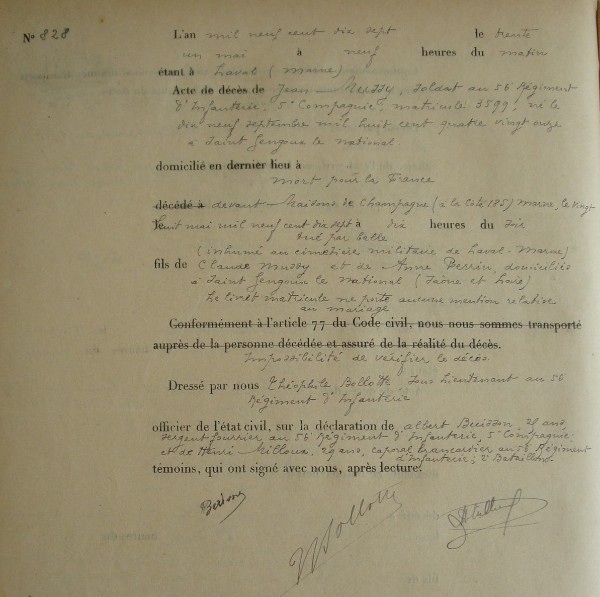 No 828
L'an mil neuf cent dix sept le trente
un mai à neuf heures du matin
étant à Laval (Marne)
Acte de décès de Jean Mussy, soldat au 56 Régiment
d'Infanterie, 5e Compagnie, matricule 3599, né le
dix neuf septembre mil huit cent quatre vingt onze
à Saint Gengoux le National
domicilié en dernier lieu à
mort pour la France
décédé à devant Maisons de Champagne (à la côte 185) Marne, le vingt
le huit mai mil neuf cent dix sept à dix heures du
tué par balle
(inhumé au cimetière militaire de Laval - Marne)
fils de Claude Mussy et de Anne Perrin, domiciliés
à Saint Gengoux le National (Saône et Loire)
Le livret matricule ne porte aucune mention relative
au mariage
Conformément à l'article 77 du Code civil, nous nous sommes transporté
auprès de la personne décédée et assuré de la réalité du décès.
Impossibilité de vérifier le décès.
Dressé par nous Théophile Bollotte Sous Lieutenant au 56
Régiment d'Infanterie
officier de l'état civil, sur la déclaration de Albert ans,
sergent fourrier au 56 Régiment d'Infanterie, 5e Compagnie
et de Henri Milloux, 29 ans, caporal brancardier au 56 Régiment
d'Infanterie, 2e Bataillon.
témoins, qui ont signé avec nous, après lecture.